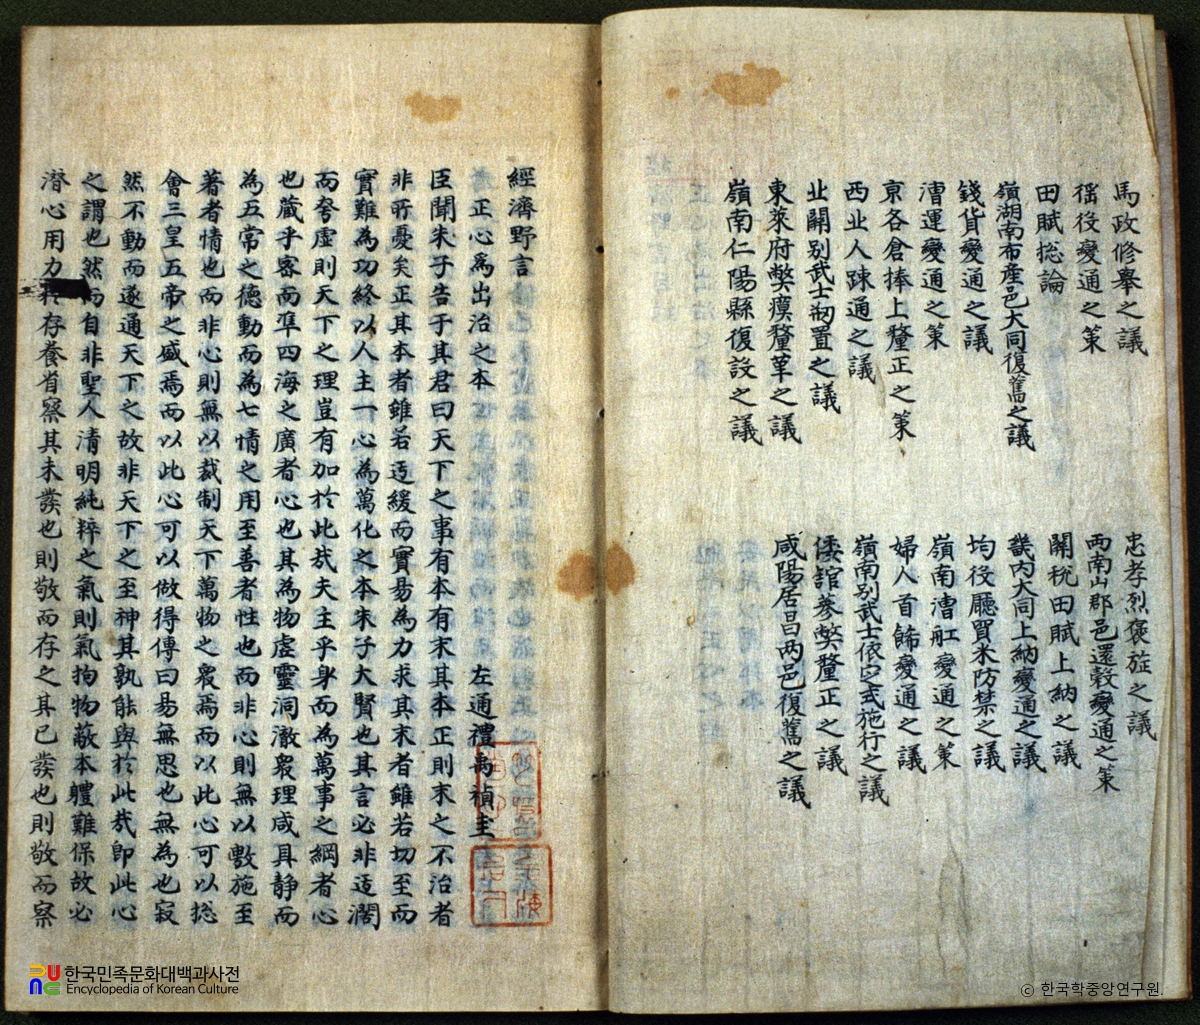 馬政修舉之議
徭役變通之策
田賦捴論
嶺湖南布產邑大同復舊之議
錢貨變通之議
漕運變通之策
京各倉捧上釐正之策
西北人踈通之議
北關別武士刱置之議
東萊府弊瘼釐革之議
嶺南仁陽縣復設之議
忠孝烈褒旌之議
兩南山郡邑還穀變通之策
關稅田賦上納之議
畿內大同上納變通之議
均役廳買米防禁之議
嶺南漕舡變通之策
婦人首飾變通之議
嶺南別武士依定式施行之議
倭館蔘弊釐正之議
咸陽居昌两邑復舊之議
經濟野言
正心爲出治之本
左通禮禹禎圭
臣聞朱子告于其君曰天下之事有本有末其本正則末之不治者
非所憂矣正其本者雖若迂緩而實易為力求其末者雖若切至而
實難為功終以人主一心為萬化之本朱子大賢也其言必非迂濶
而夸虛則天下之理豈有加於此哉夫主乎身而為萬事之綱者心
也藏乎密而準四海之廣者心也其為物虛靈洞澈衆理咸具静而
為五常之德動而為七情之用至善者性也而非心則無以敷施至
著者情也而非心則無以裁制天下萬物之衆焉而以此心可以捴
會三皇五帝之盛焉而以此心可以做得傳曰易無思也無為也寂
然不動而遂通天下之故非天下之至神其孰能與於此哉卽此心
之謂也然而自非聖人清明純粹之氣則氣拘物蔽本軆難保故必
潛心用力於存養省察其未發也則敬而存之其已發也則敬而察
한국민족문화대백과사전
Encyclopedia of Korean Culture
ⓒ 한국학중앙연구원.